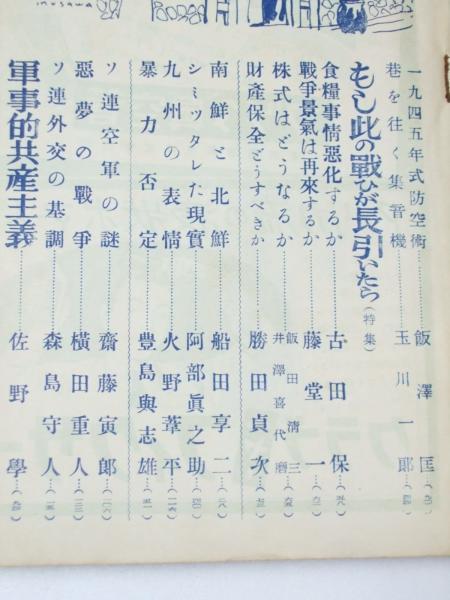 一九四五年式防空術……飯澤匡…(九二)
巷を往く集音機……玉川一郎…(四四)
もし此の戰ひが長引いたら(特集)
食糧事情惡化するか……古田保…(五八)
戰爭景氣は再來するか……藤堂一…(六二)
株式はどうなるか……飯田清三 井澤喜代磨…(六五)
財產保全どうすべきか……勝田貞次…(七三)
南鮮と北鮮……船田享二…(二八)
シミツタレた現實……阿部眞之助…(四〇)
九州の表情……火野葦平…(二六)
暴力否定……豊島與志雄…(五一)
ソ連空軍の謎……齋藤寅郎…(二六)
惡夢の戰爭……橫田重人…(二三)
ソ連外交の基調……森島守人…(一五)
軍事的共産主義……佐野學…(九四)